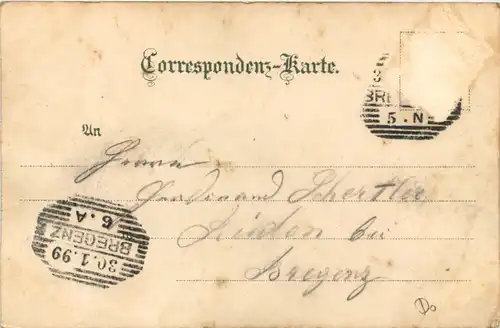 Correspondenz-Karte.
3
BRE
5. N
An
Herrn
Ferdinand
bei
Bregenz
30.1.99
BREGENZ
6. A
Do